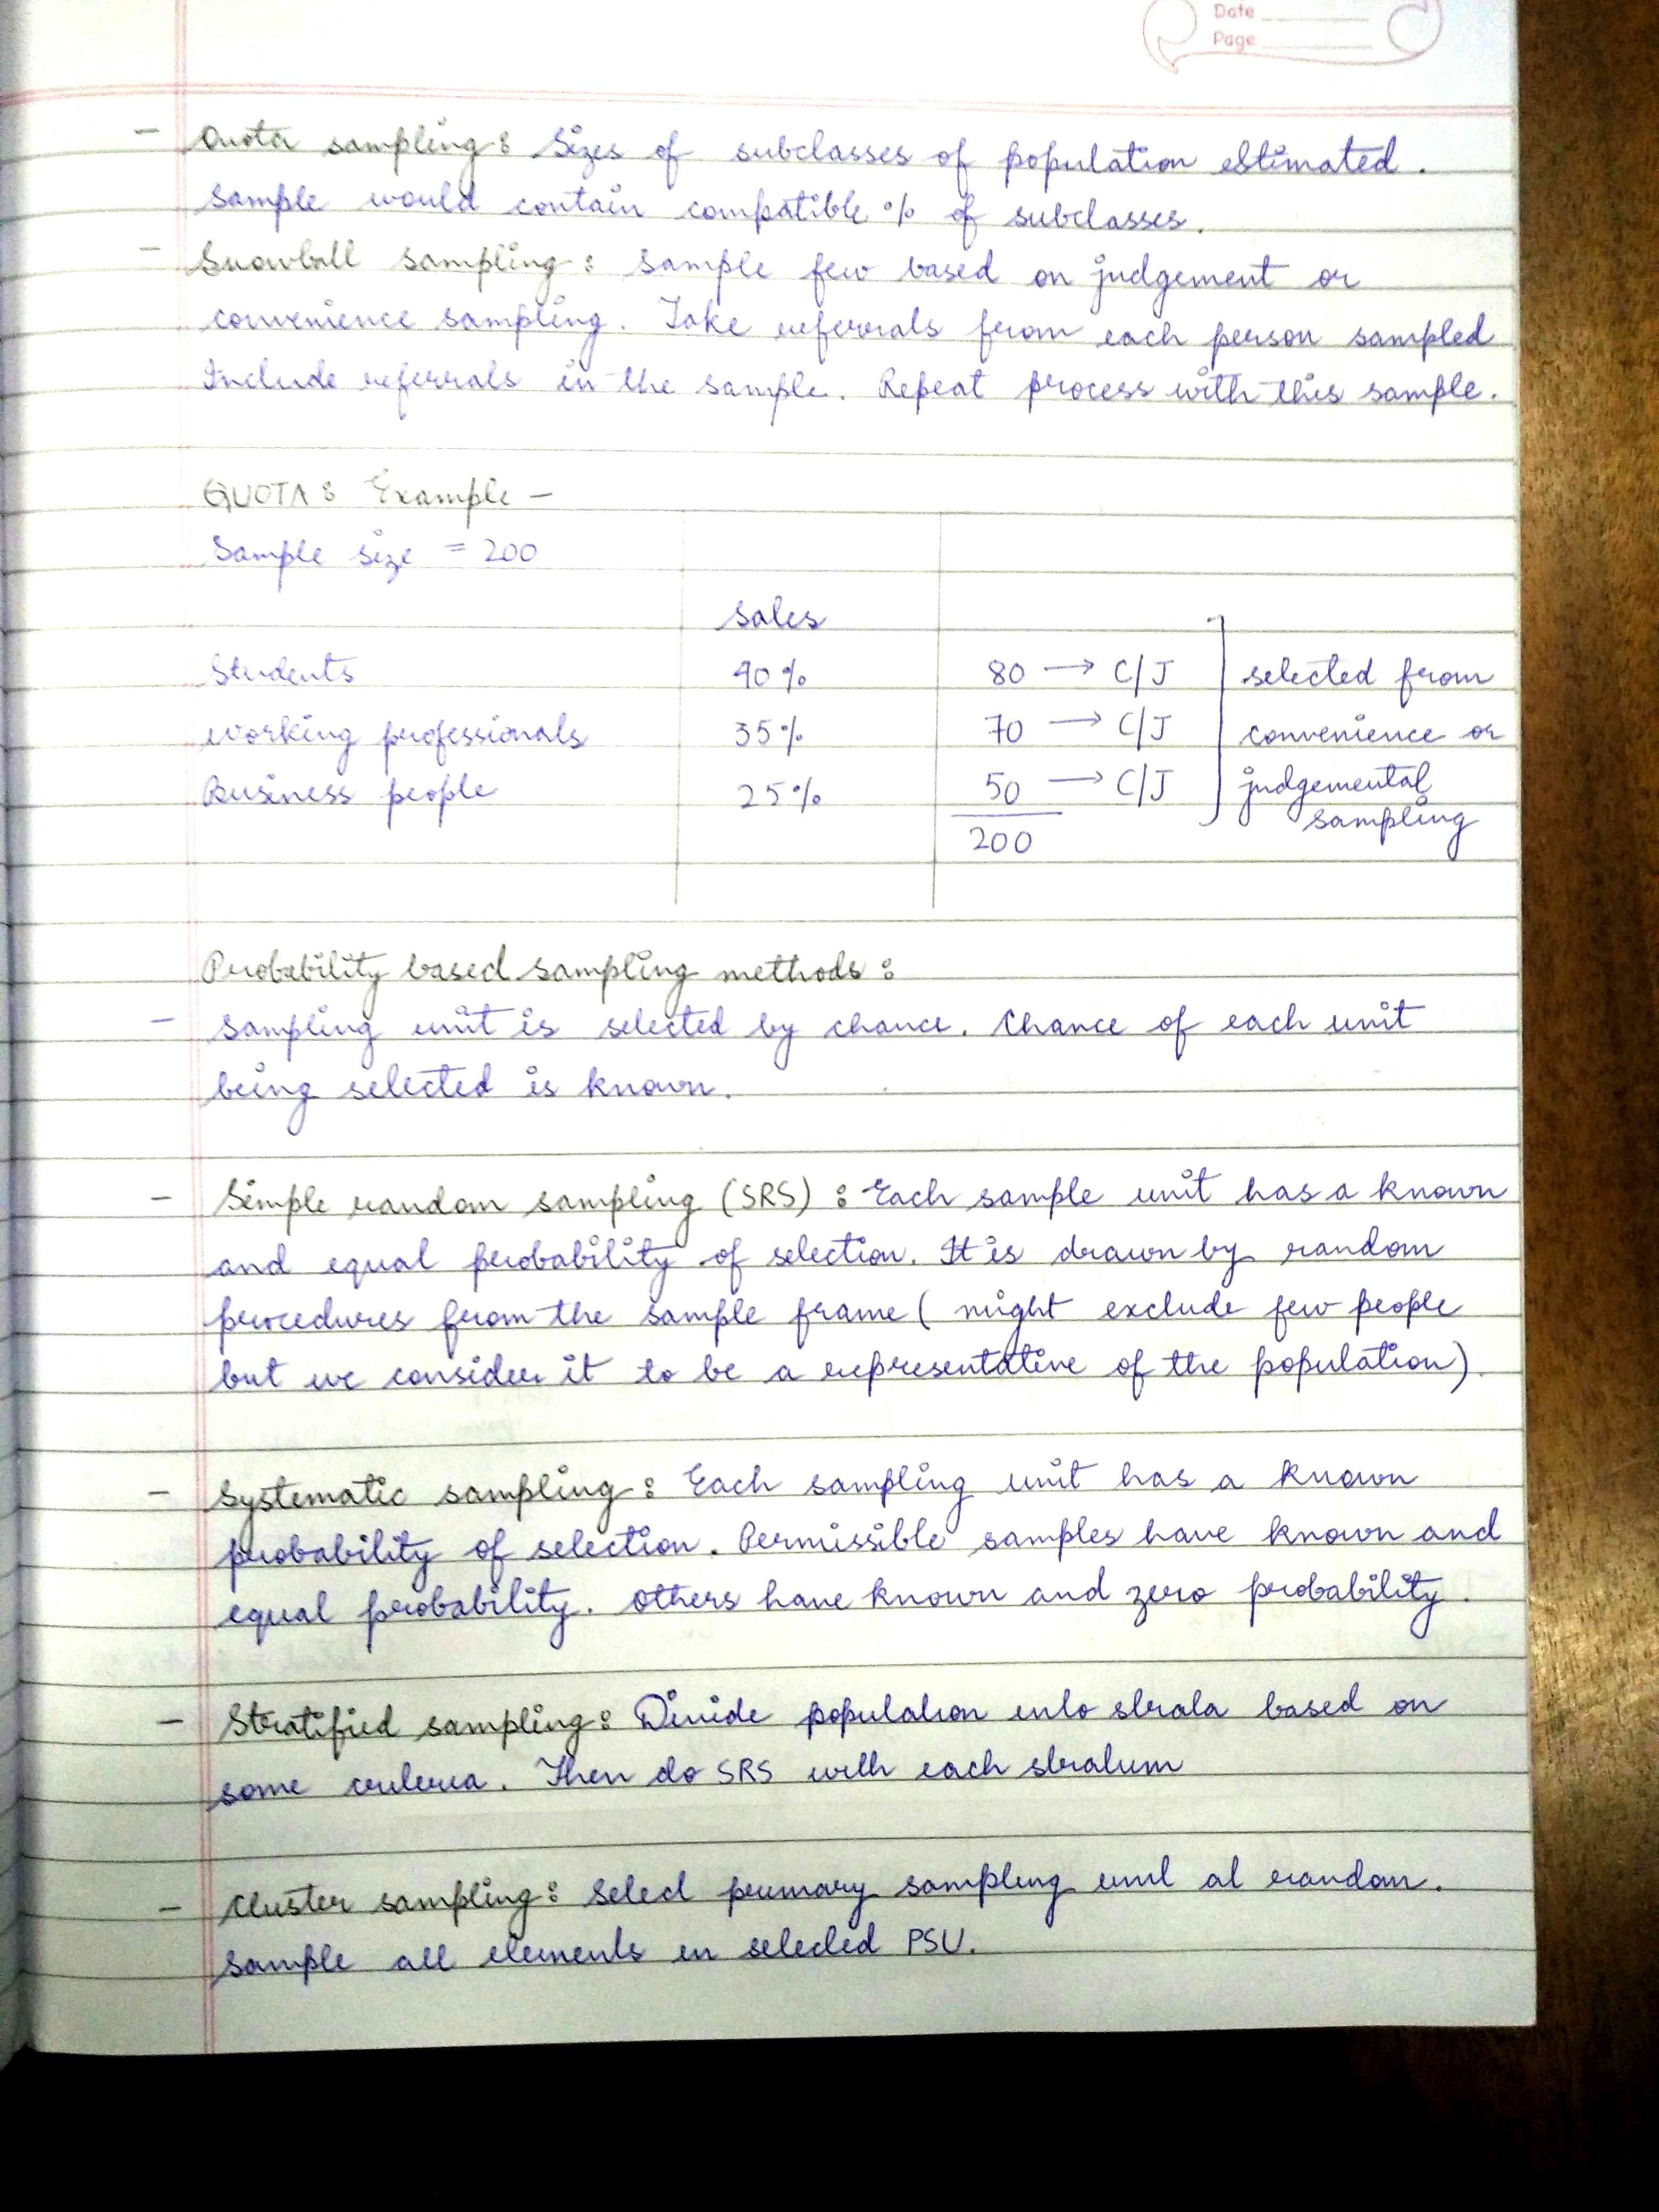 Date
Page
- Quota sampling: Sizes of subclasses of population estimated.
Sample would contain compatible % of subclasses.
- Snowball sampling: Sample few based on judgement or
convenience sampling. Take referrals from each person sampled
Include referrals in the sample. Repeat process with this sample.
QUOTA: Example -
Sample size = 200
Sales
Students 40% 80 → C/J selected from
Working professionals 35% 70 → C/J convenience or
Business people 25% 50 → C/J judgemental
sampling
200
Probability based sampling methods:
- Sampling unit is selected by chance. Chance of each unit
being selected is known.
- Simple random sampling (SRS): Each sample unit has a known
and equal probability of selection. It is drawn by random
procedures from the sample frame (might exclude few people
but we consider it to be a representative of the population).
- Systematic sampling: Each sampling unit has a known
probability of selection. Permissible samples have known and
equal probability. Others have known and zero probability.
- Stratified sampling: Divide population into strata based on
some criteria. Then do SRS with each stratum
- Cluster sampling: Select primary sampling unit at random.
Sample all elements in selected PSU.